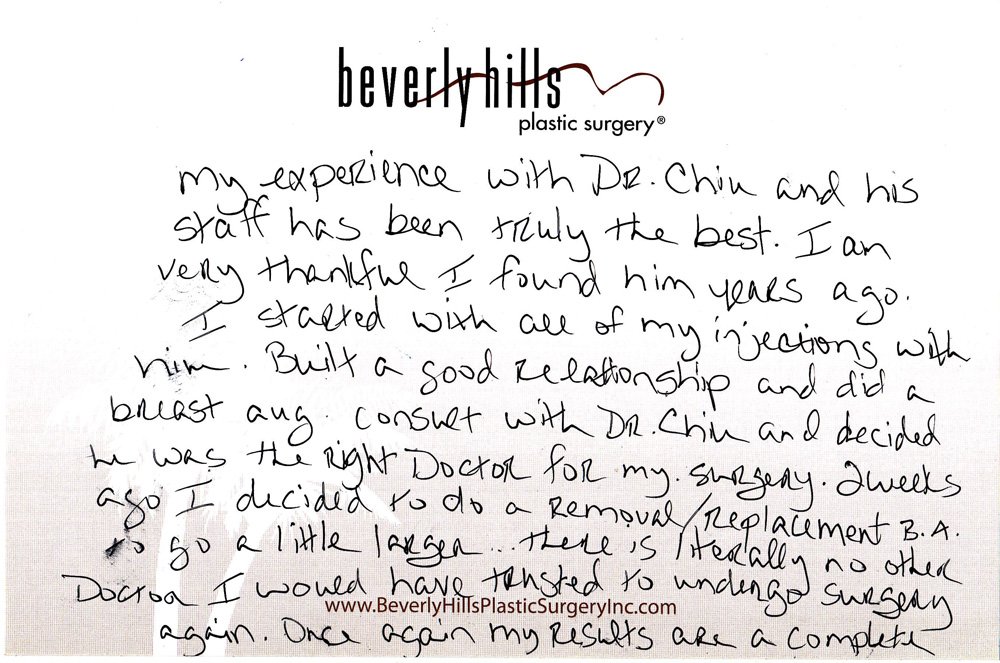 beverly hills
plastic surgery®
my experience with DR. Chiu and his
staff has been truly the best. I am
very thankful I found him years ago.
I started with all of my injections with
him. Built a good relationship and did a
breast aug. consult with DR. Chiu and decided
he was the right Doctor for my surgery. 2weeks
ago I decided to do a Removal/Replacement B.A.
to go a little larger... there is literally no other
Doctor I would have trusted to undergo surgery
www.BeverlyHillsPlasticSurgeryInc.com
again. Once again my results are a complete